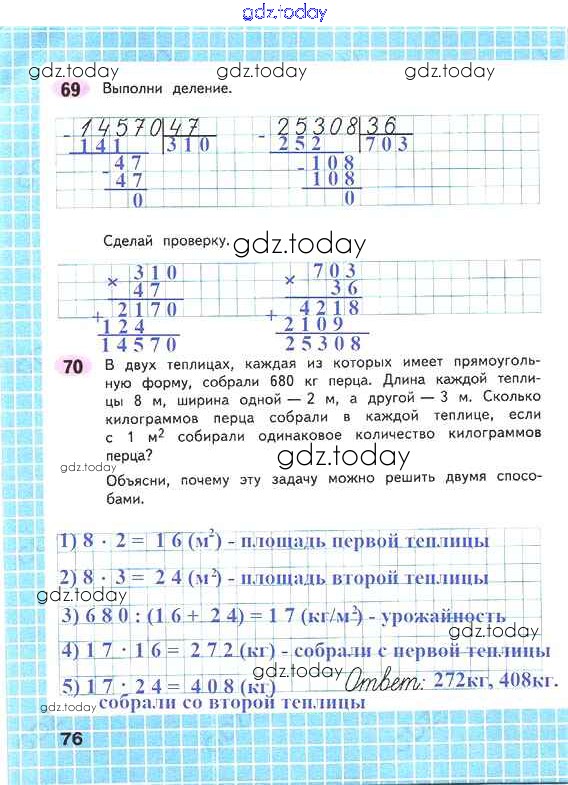 gdz.today
gdz.today gdz.today gdz.today
69 Выполни деление.
- 14570 47 - 25308 36
141 310 252 703
- 47 - 108
47 108
0 0
Сделай проверку. gdz.today
× 310 × 703
47 36
+ 2170 + 4218
124 2109
14570 25308
70 В двух теплицах, каждая из которых имеет прямоуголь-
ную форму, собрали 680 кг перца. Длина каждой тепли-
цы 8 м, ширина одной — 2 м, а другой — 3 м. Сколько
килограммов перца собрали в каждой теплице, если
с 1 м² собирали одинаковое количество килограммов
перца?
gdz.today gdz.today
Объясни, почему эту задачу можно решить двумя спосо-
бами.
1) 8 · 2 = 16 (м²) - площадь первой теплицы
2) 8 · 3 = 24 (м²) - площадь второй теплицы
gdz.today
3) 680 : (16 + 24) = 17 (кг/м²) - урожайность
gdz.today
4) 17 · 16 = 272 (кг) - собрали с первой теплицы
gdz.today
5) 17 · 24 = 408 (кг) Ответ: 272кг, 408кг.
gdz.today
собрали со второй теплицы
76